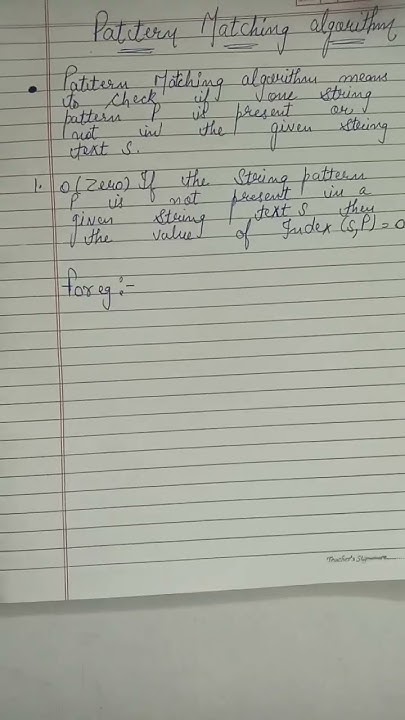 Pattern Matching algorithm
• Pattern Matching algorithm means
to check if one String
pattern P is present or
not in the given string
text S.
1. 0 (Zero) If the String pattern
P is not present in a
given string text S then
the value of Index (S,P) = 0
for eg :-
Teacher's Signature